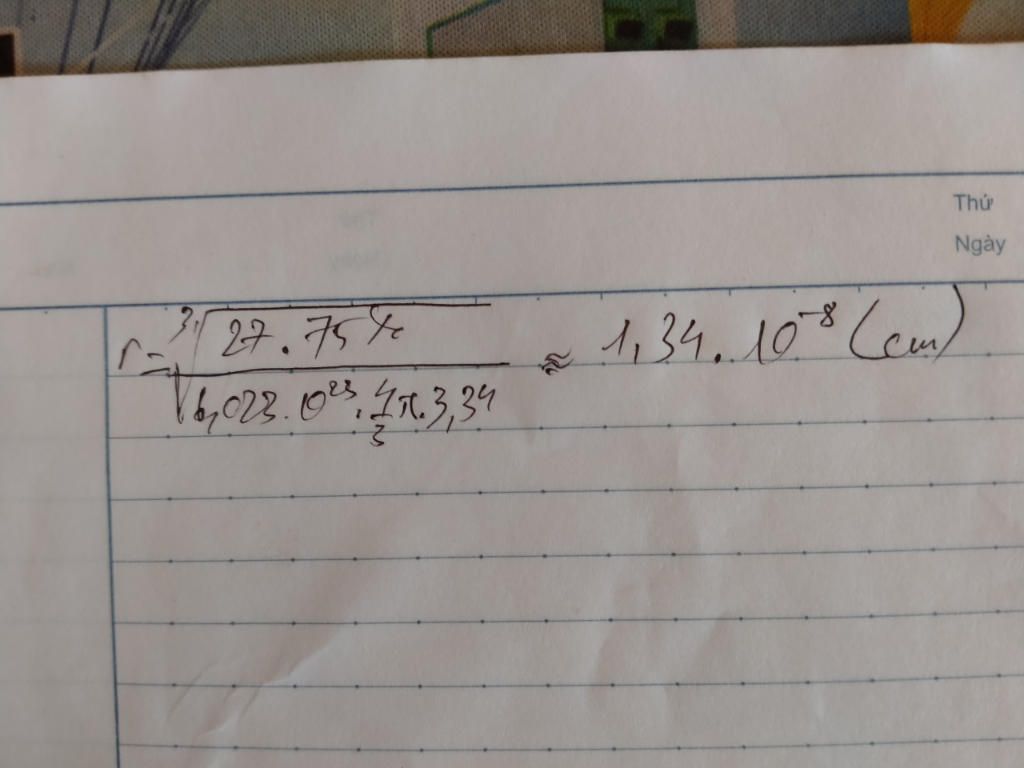 Thứ
Ngày
r = ∛(27 . 75% / (6,023 . 10²³ . 4/3 π . 3,34)) ≈ 1,34 . 10⁻⁸ (cm)